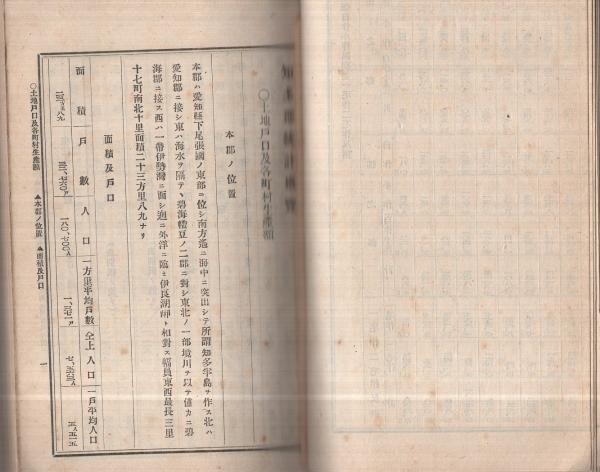 ○土地戸口及各町村生産額
本郡ノ位置
本郡ハ愛知縣下尾張國ノ東部ニ位シ南方遙ニ海中ニ突出シテ所謂知多半島ヲ作ス北ハ
愛知郡ニ接シ東ハ海水ヲ隔テヽ碧海幡豆ノ二郡ニ對シ東北ノ一部境川ヲ以テ僅カニ碧
海郡ニ接ス西ハ一帶伊勢灣ニ面シ迥ニ外洋ニ臨ミ伊良湖岬ト相對ス幅員東西最長三里
十七町南北十里面積二十三方里八九ナリ
面積及戸口
面積
戸數
人口
一方里平均戸數
仝上人口
一戸平均人口
○土地戸口及各町村生産額 ▲本郡ノ位置 ▲面積及戸口
一